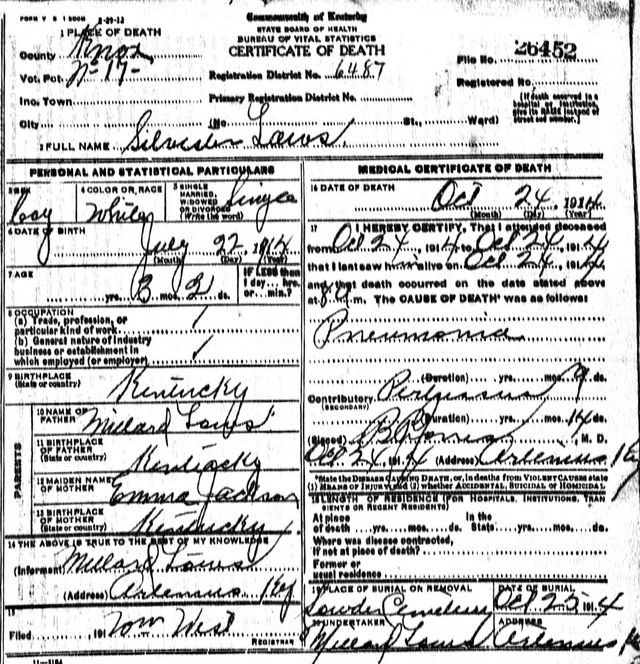 FORM V S 1 500M 8-29-12
Commonwealth of Kentucky
STATE BOARD OF HEALTH
BUREAU OF VITAL STATISTICS
CERTIFICATE OF DEATH
1 PLACE OF DEATH
County Knox
Vot. Pct. No 17-
Inc. Town
City (No. St., Ward)
Registration District No. 6487
Primary Registration District No.
File No. 26452
Registered No.
[If death occurred in a hospital or institution, give its NAME instead of street and number.]
2 FULL NAME Silvester Laws
PERSONAL AND STATISTICAL PARTICULARS
3 SEX boy
4 COLOR OR RACE White
5 SINGLE, MARRIED, WIDOWED OR DIVORCED (Write the word) Single
6 DATE OF BIRTH July 22, 1914
(Month) (Day) (Year)
7 AGE
yrs. 3 mos. 2 ds.
IF LESS than 1 day... hrs. or... min.?
8 OCCUPATION
(a) Trade, profession, or particular kind of work
(b) General nature of industry business or establishment in which employed (or employer)
9 BIRTHPLACE
(State or country) Kentucky
PARENTS
10 NAME OF FATHER Millard Laws
11 BIRTHPLACE OF FATHER
(State or country) Kentucky
12 MAIDEN NAME OF MOTHER Emma Jackson
13 BIRTHPLACE OF MOTHER
(State or country) Kentucky
14 THE ABOVE IS TRUE TO THE BEST OF MY KNOWLEDGE
(Informant) Millard Laws
(Address) Artemus Ky
15
Filed 191 Wm West
REGISTRAR
11-3184
MEDICAL CERTIFICATE OF DEATH
16 DATE OF DEATH Oct 24, 1914
(Month) (Day) (Year)
17 I HEREBY CERTIFY, That I attended deceased
from Oct 24, 1914 to Oct 24, 1914
that I last saw him alive on Oct 24, 1914
and that death occurred on the date stated above
at m. The CAUSE OF DEATH* was as follows:
Pneumonia
(Duration) yrs. mos. 9 ds.
Contributory Pertussus
(SECONDARY)
(Duration) yrs. mos. 14 ds.
(Signed) , M. D.
Oct 24, 1914 (Address) Artemus Ky
*State the DISEASE CAUSING DEATH, or, in deaths from VIOLENT CAUSES state (1) MEANS OF INJURY, and (2) whether ACCIDENTAL, SUICIDAL or HOMICIDAL
18 LENGTH OF RESIDENCE (FOR HOSPITALS, INSTITUTIONS, TRANSIENTS OR RECENT RESIDENTS)
At place of death yrs. mos. ds. In the State yrs. mos. ds.
Where was disease contracted,
if not at place of death?
Former or
usual residence
19 PLACE OF BURIAL OR REMOVAL Lawder Cemetery
DATE OF BURIAL Oct 25, 1914
20 UNDERTAKER Millard Laws
ADDRESS Artemus Ky